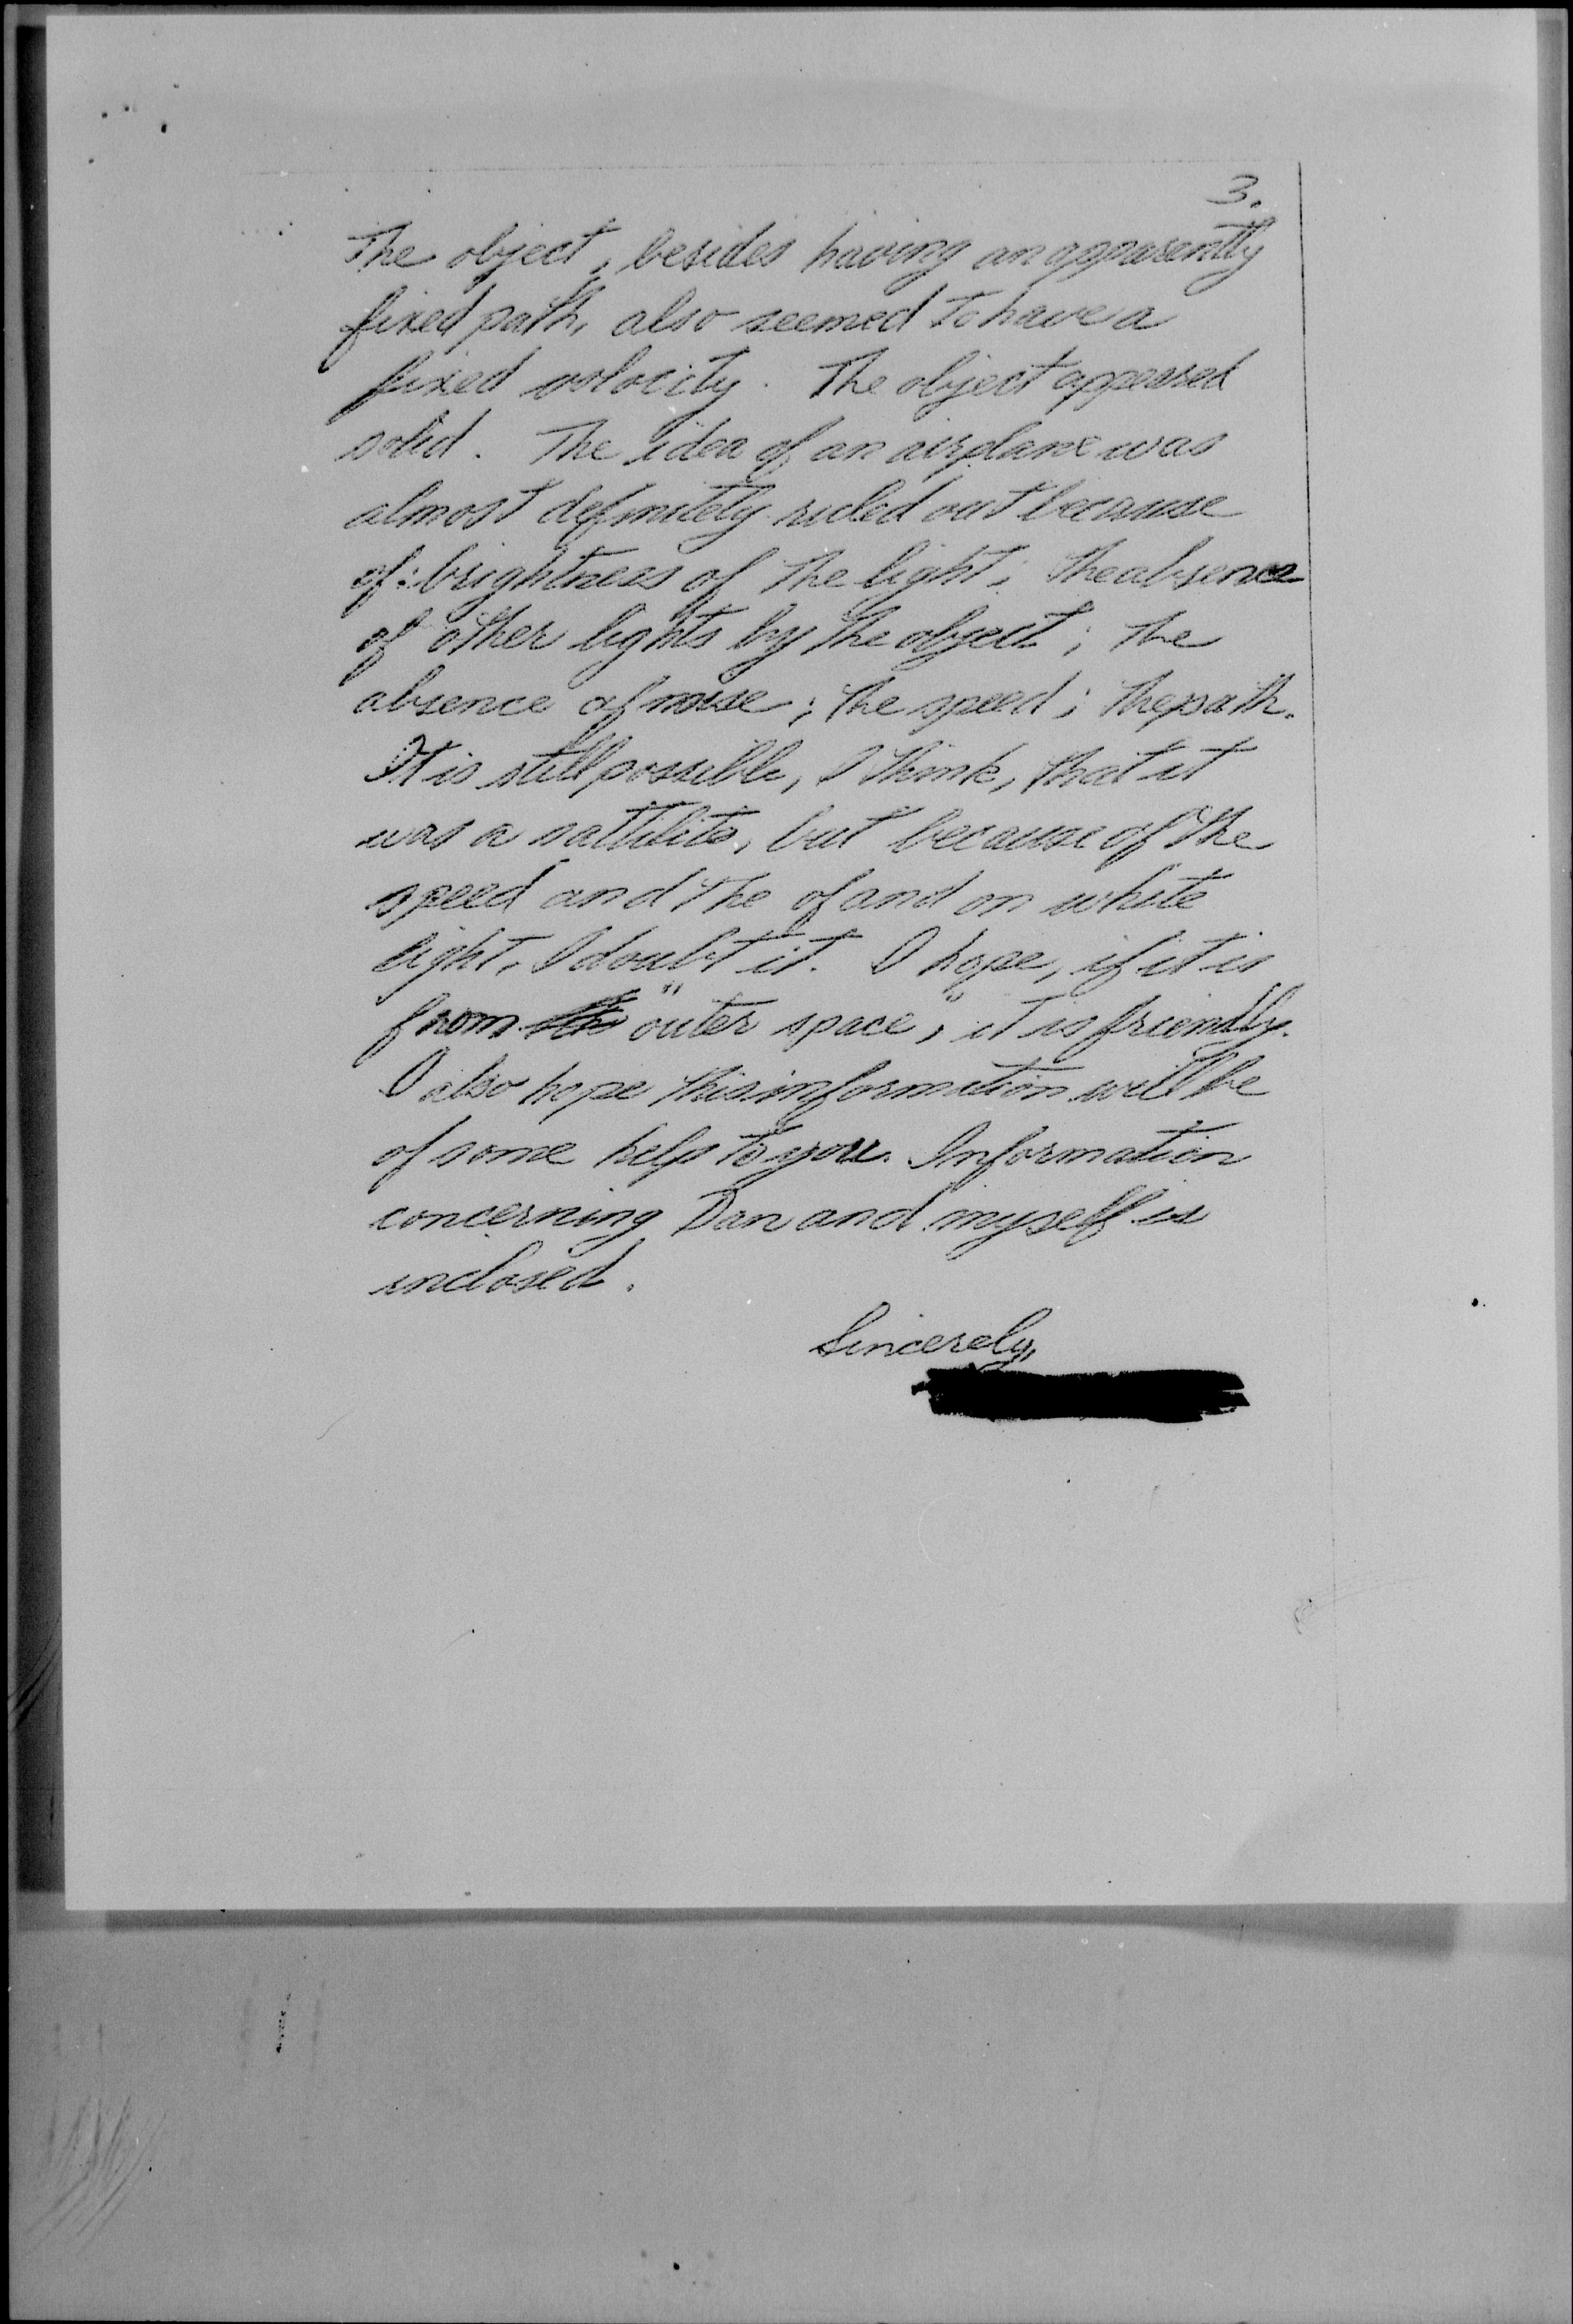 3.
The object, besides having an apparently
fixed path, also seemed to have a
fixed velocity. The object appeared
solid. The idea of an airplane was
almost definitely ruled out because
of: brightness of the light; the absence
of other lights by the object; the
absence of noise; the speed; the path.
It is still possible, I think, that it
was a sattilite, but because of the
speed and the of and on white
light, I doubt it. I hope, if it is
from "outer space", it is friendly.
I also hope this information will be
of some help to you. Information
concerning Dan and myself is
inclosed.
Sincerely,